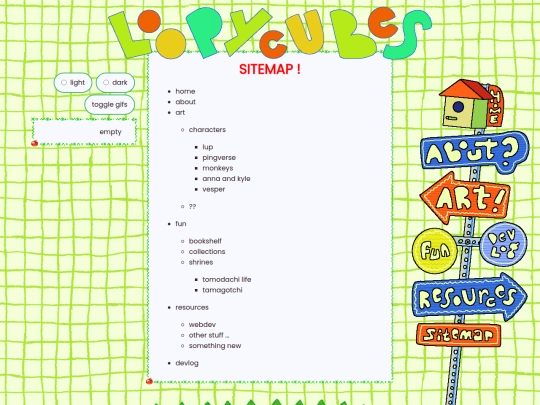 LOOPYCUBES
SITEMAP !
light
dark
toggle gifs
empty
home
about
art
characters
lup
pingverse
monkeys
anna and kyle
vesper
??
fun
bookshelf
collections
shrines
tomodachi life
tamagotchi
resources
webdev
other stuff ...
something new
devlog
HOME
ABOUT?
ART!
FUN
DEV
LOG
RESOURCES
Sitemap